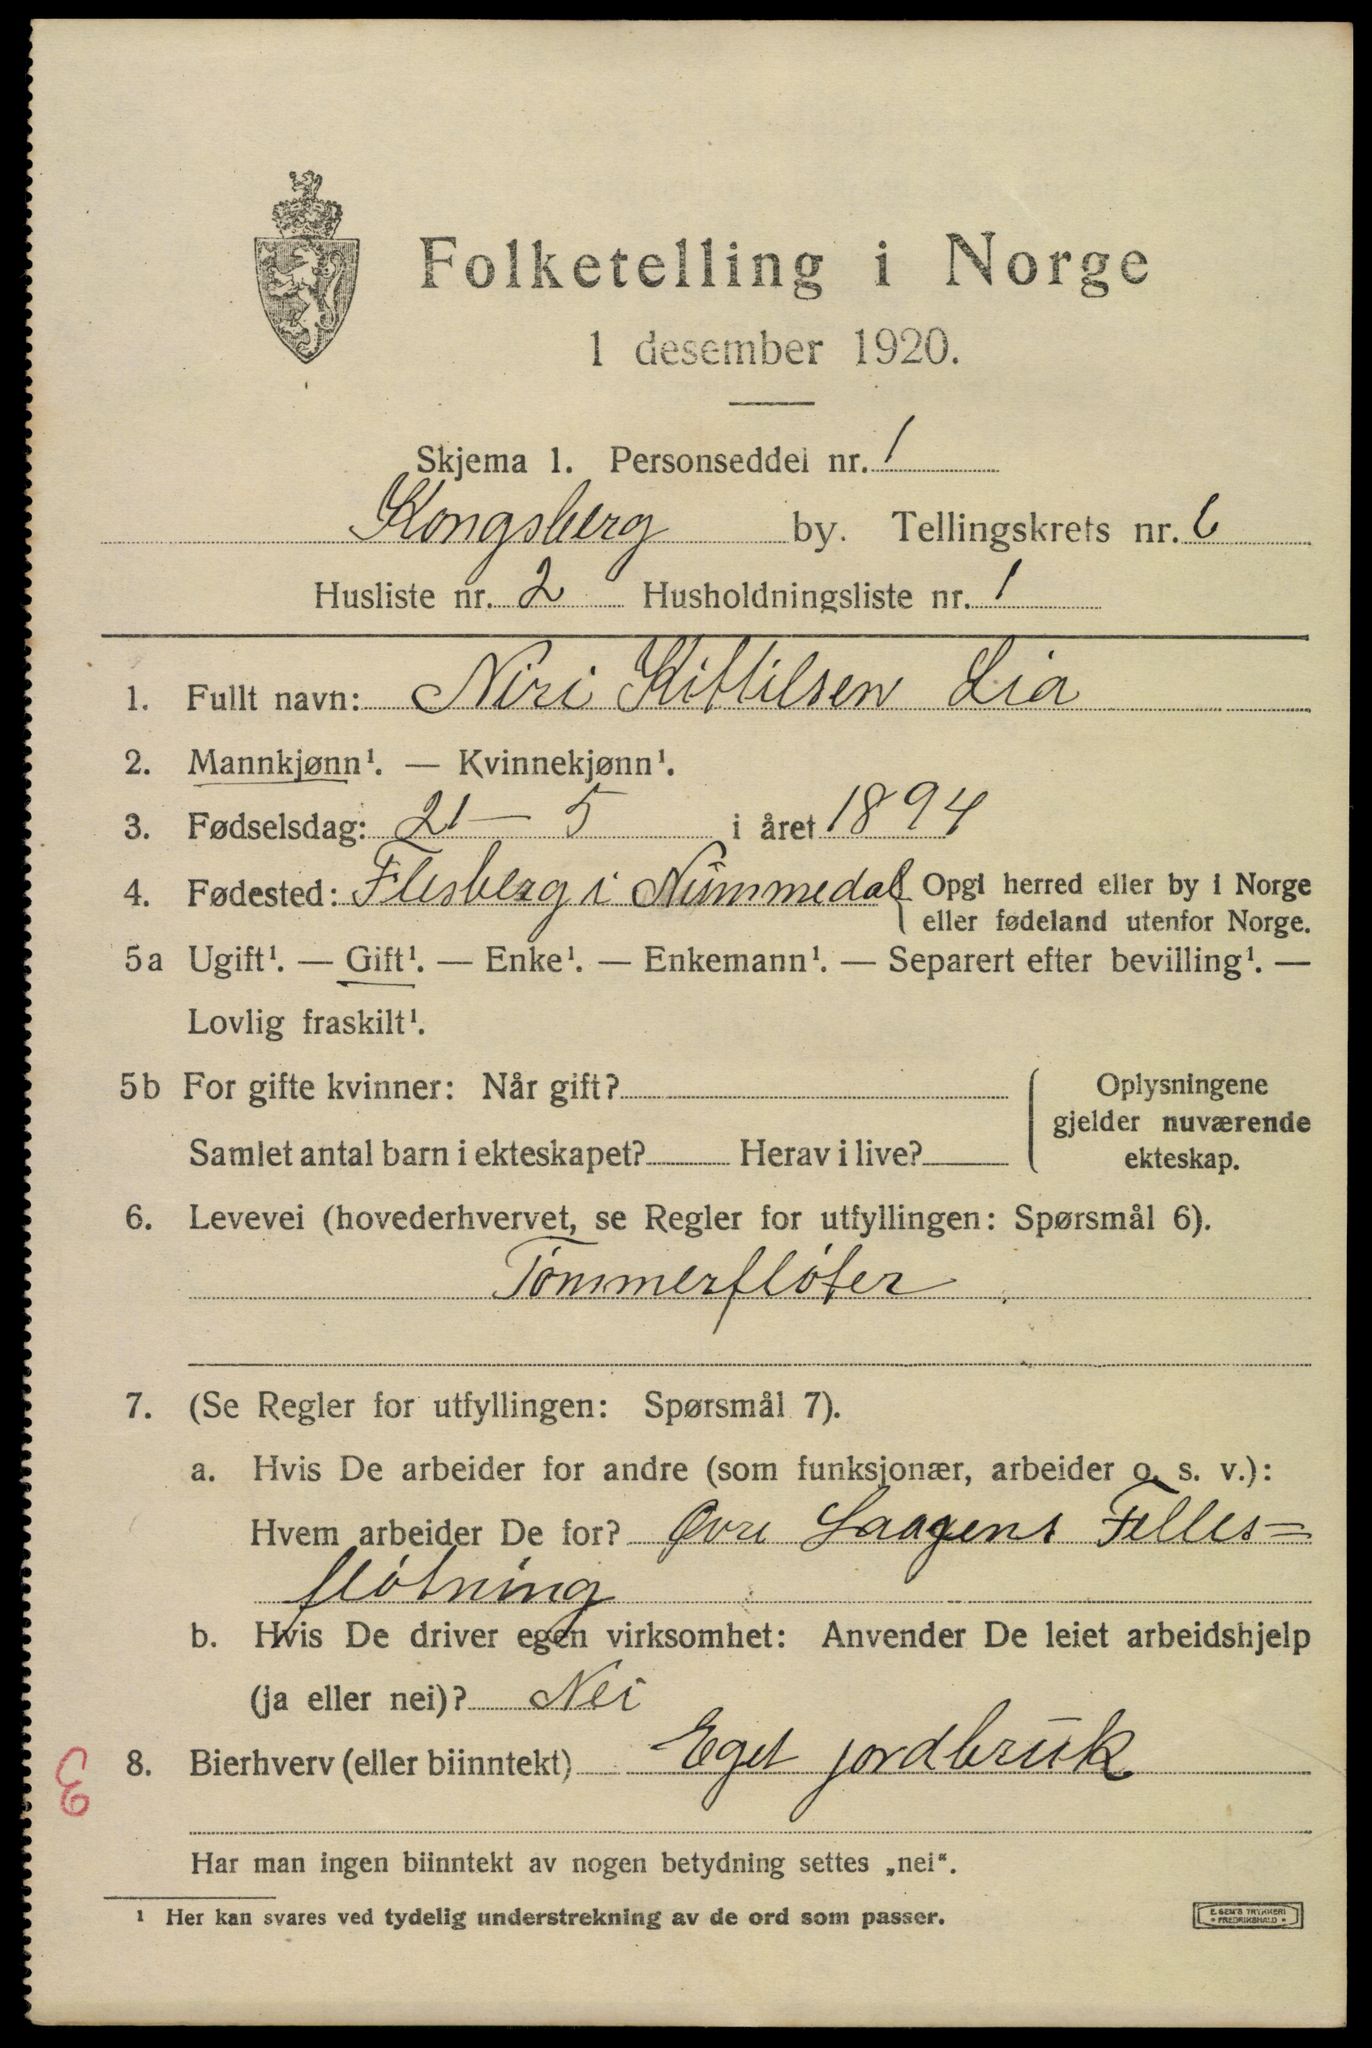 Folketelling i Norge
1 desember 1920.
Skjema 1. Personseddel nr. 1
Kongsberg by. Tellingskrets nr. 6
Husliste nr. 2 Husholdningsliste nr. 1
1. Fullt navn: Niri Kittilsen Lia
2. Mannkjønn¹. — Kvinnekjønn¹.
3. Fødselsdag: 21 – 5 i året 1894
4. Fødested: Flesberg i Nummedal { Opgi herred eller by i Norge
eller fødeland utenfor Norge.
5a Ugift¹. — Gift¹. — Enke¹. — Enkemann¹. — Separert efter bevilling¹. —
Lovlig fraskilt¹.
5b For gifte kvinner: Når gift? Oplysningene
gjelder nuværende
Samlet antal barn i ekteskapet? Herav i live? ekteskap.
6. Levevei (hovederhvervet, se Regler for utfyllingen: Spørsmål 6).
Tømmerfløter
7. (Se Regler for utfyllingen: Spørsmål 7).
a. Hvis De arbeider for andre (som funksjonær, arbeider o. s. v.):
Hvem arbeider De for? Øvre Laagens Felles=
fløtning
b. Hvis De driver egen virksomhet: Anvender De leiet arbeidshjelp
(ja eller nei)? Nei
8. Bierhverv (eller biinntekt) Eget jordbruk
Har man ingen biinntekt av nogen betydning settes „nei“.
¹ Her kan svares ved tydelig understrekning av de ord som passer.
E. SEM'S TRYKKERI
• FREDRIKSHALD •